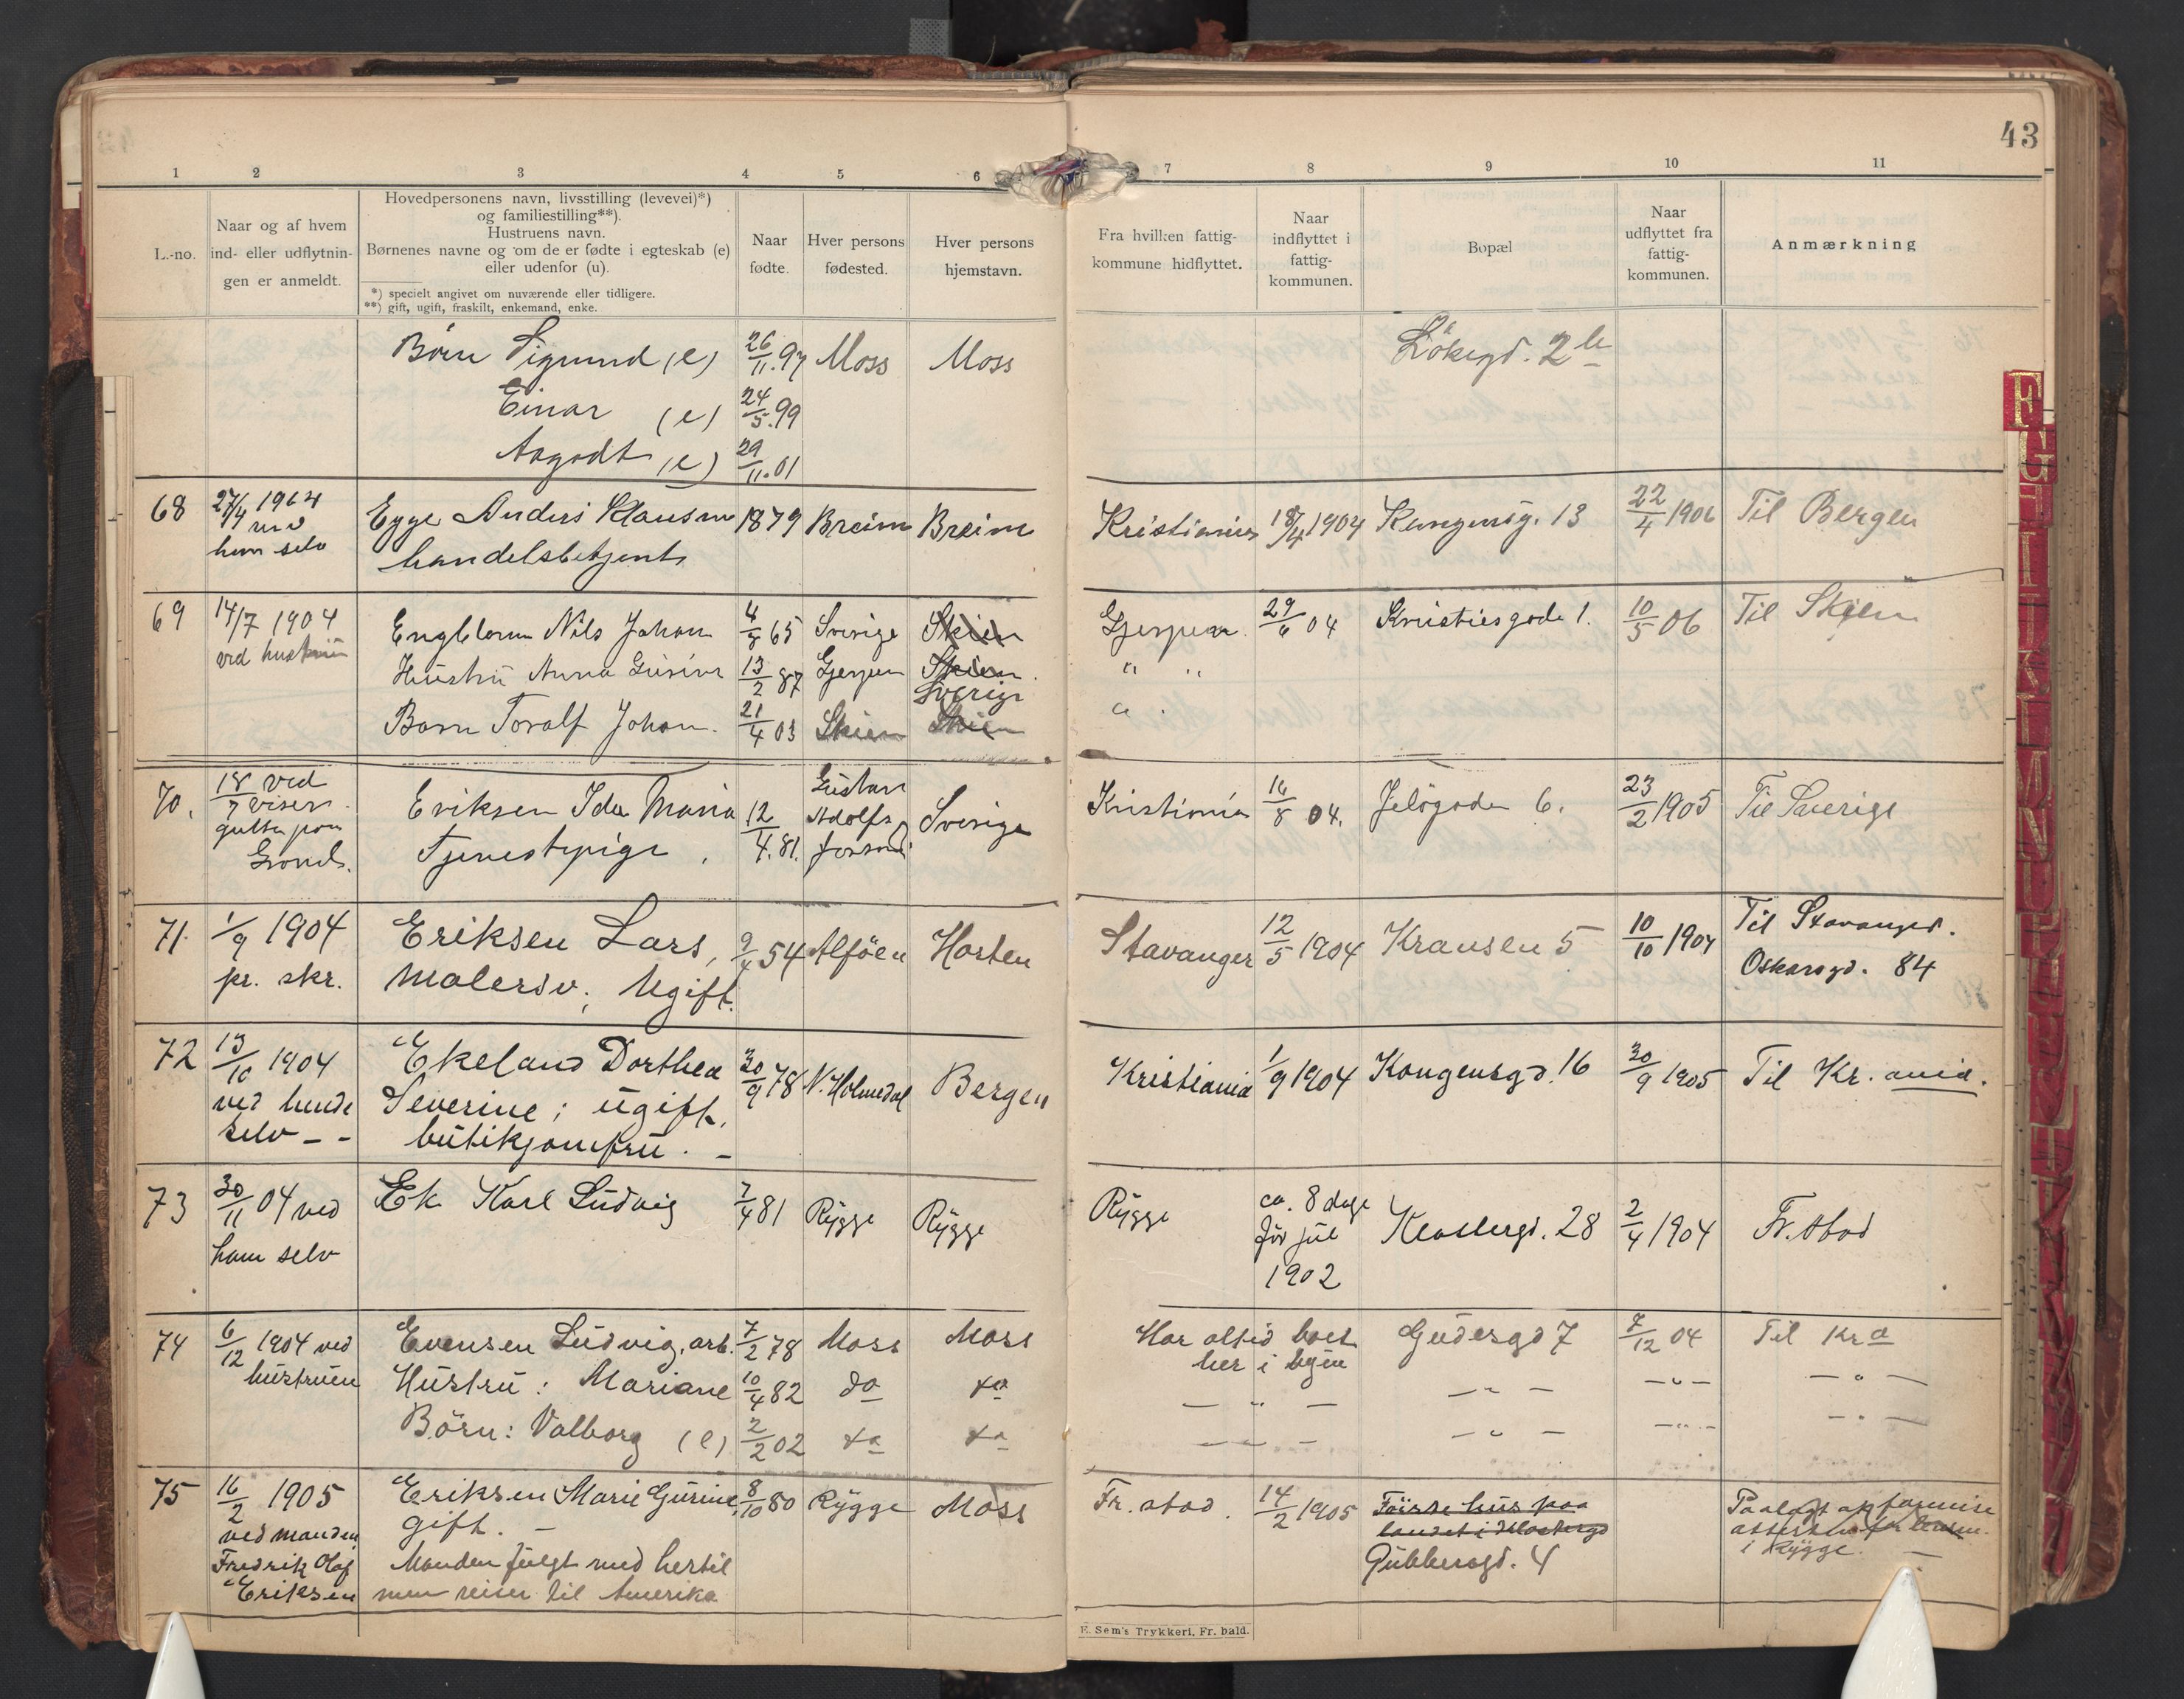 43
1 2 3 4 5 6 7 8 9 10 11
L.-no.
Naar og af hvem
ind- eller udflytnin-
gen er anmeldt.
Hovedpersonens navn, livsstilling (levevei)*)
og familiestilling**).
Hustruens navn.
Børnenes navne og om de er fødte i egteskab (e)
eller udenfor (u).
*) specielt angivet om nuværende eller tidligere.
**) gift, ugift, fraskilt, enkemand, enke.
Naar
fødte.
Hver persons
fødested.
Hver persons
hjemstavn.
Fra hvilken fattig-
kommune hidflyttet.
Naar
indflyttet i
fattig-
kommunen.
Bopæl
Naar
udflyttet fra
fattig-
kommunen.
Anmærkning
Börn Sigmund (e) 26/11.97 Moss Moss Lökegd. 2b
Einar (e) 24/5.99
Aagodt (e) 29/11.01
68 27/4 1904 ved ham selv
Egge Anders Klausen 1879 Breim Breim Kristiania 18/4 1904 Kongensg. 13 22/4 1906 Til Bergen
handelsbetjent
69 14/7 1904 ved hustruen
Engblom Nils Johan 4/8 65 Sverige Skien Gjerpen 29/6 04 Kristiesgade 1. 10/5 06 Til Skien
Hustru Anna Gurine 13/2 87 Gjerpen Skien " "
Sverige
Barn Toralf Johan. 21/4 03 Skien Skien "
70. 18/7 ved visergutten paa Grand.
Eriksen Ida Maria 12/4.81. Gustav Adolfs Sverige Kristiania 16/8 04. Jelögaden 6. 23/2 1905 Til Sverige
Tjenestepige
71. 1/9 1904
pr. skr.
Eriksen Lars, 9/4 54 Alföen Horten Stavanger 12/5 1904 Kransen 5 10/10 1904 Til Stavanger.
Malersv.; Ugift. Oskarsgd. 84
72 13/10 1904
ved hende
selv - -
Ekeland Dorthea 30/9 78 N. Holmedal Bergen Kristiania 1/9 1904 Kongensgd. 16 30/9 1905 Til Kr.ania.
Severine; ugift,
butikjomfru. -
73 30/11 04 ved
ham selv
Ek Karl Ludvig 7/4 81 Rygge Rygge Rygge ca. 8 dage Klostergd. 28 2/4 1904 Fr.stad
för jul
1902
74 6/12 1904 ved
hustruen
Evensen Ludvig, arb. 7/2 78 Moss Moss Har altid boet Gudesgd 7 7/12 04 Til Kra
her i byen
Hustru: Mariane 10/4 82 do do - " - - " - - " - - " -
Börn: Valborg (e) 2/2 02 do do - " - - " - - " - - " -
75 16/2 1905
ved manden
Fredrik Olaf
Eriksen
Eriksen Marie Gurine, 8/10 80 Rygge Moss Fr.stad. 14/2 1905 Förste hus paa
gift. - landet i Klostergd
Manden fulgt med hertil Gubberogd. 4
men reiser til Amerika
i Rygge. -
E. Sem's Trykkeri, Fr. hald.
F
G
H
I